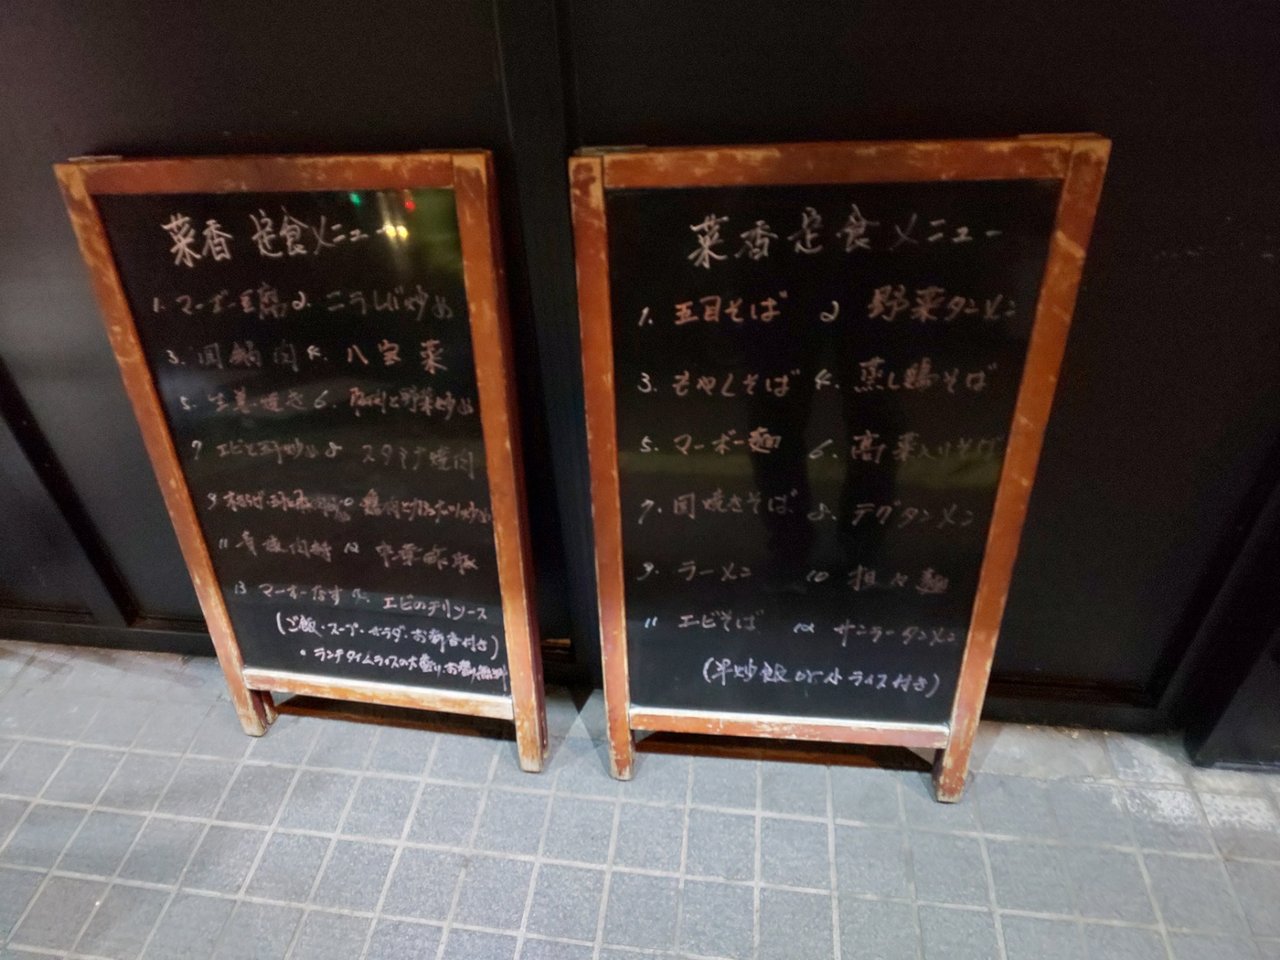 菜香 定食メニュー
1. マーボー豆腐 2. ニラレバ炒め
3. 回鍋肉 4. 八宝菜
5. 生姜焼き 6. 豚肉と野菜炒め
7 エビと玉子炒め 8 スタミナ焼肉
9 10 鶏肉と
11 青椒肉絲 12
13 マーボーなす 14. エビのチリソース
(ご飯・スープ・サラダ・お新香付き)
・ランチタイムライスの大盛り、お替り無料
菜香 定食メニュー
1. 五目そば 2 野菜タンメン
3. もやしそば 4. 蒸し鶏そば
5. マーボー麺 6. 高菜入りそば
7. 固焼きそば 8. テグタンメン
9. ラーメン 10 担々麺
11 エビそば 12 サンラータンメン
(半炒飯 or 小ライス付き)